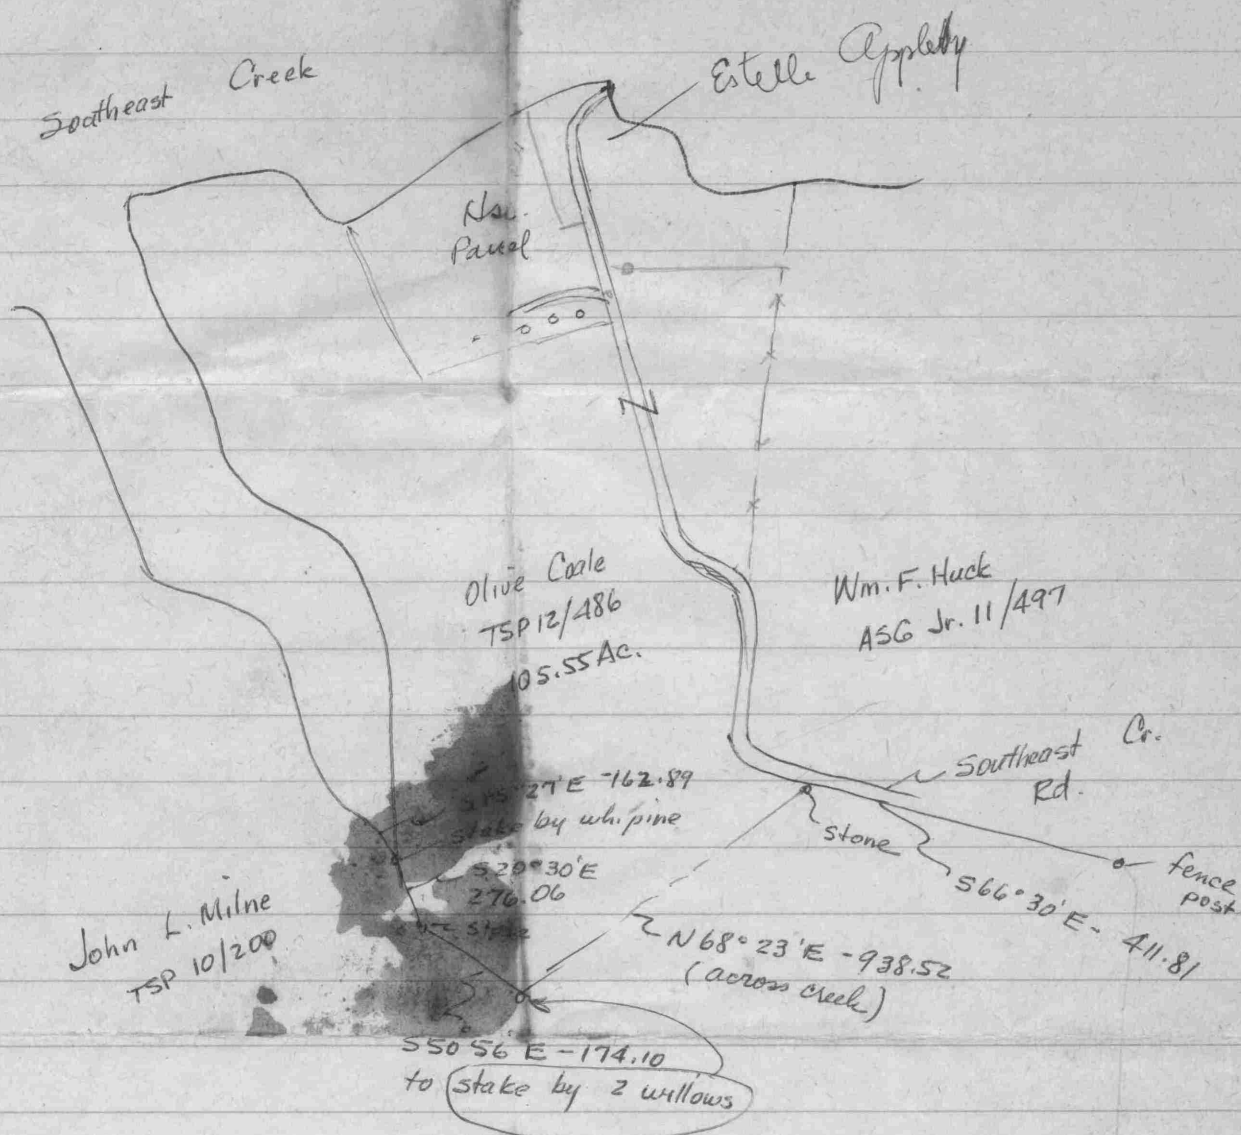 Southeast Creek
Estelle Appleby
Hse.
Parcel
Olive Coale
TSP 12/486
105.55 Ac.
Wm. F. Huck
ASG Jr. 11/497
Southeast Cr.
Rd.
27'E - 162.89
stake by whi. pine
S20°30'E
276.06
stone
fence
post
S66°30'E - 411.81
John L. Milne
TSP 10/200
N68°23'E - 938.52
(across creek)
S50 56'E - 174.10
to stake by 2 willows